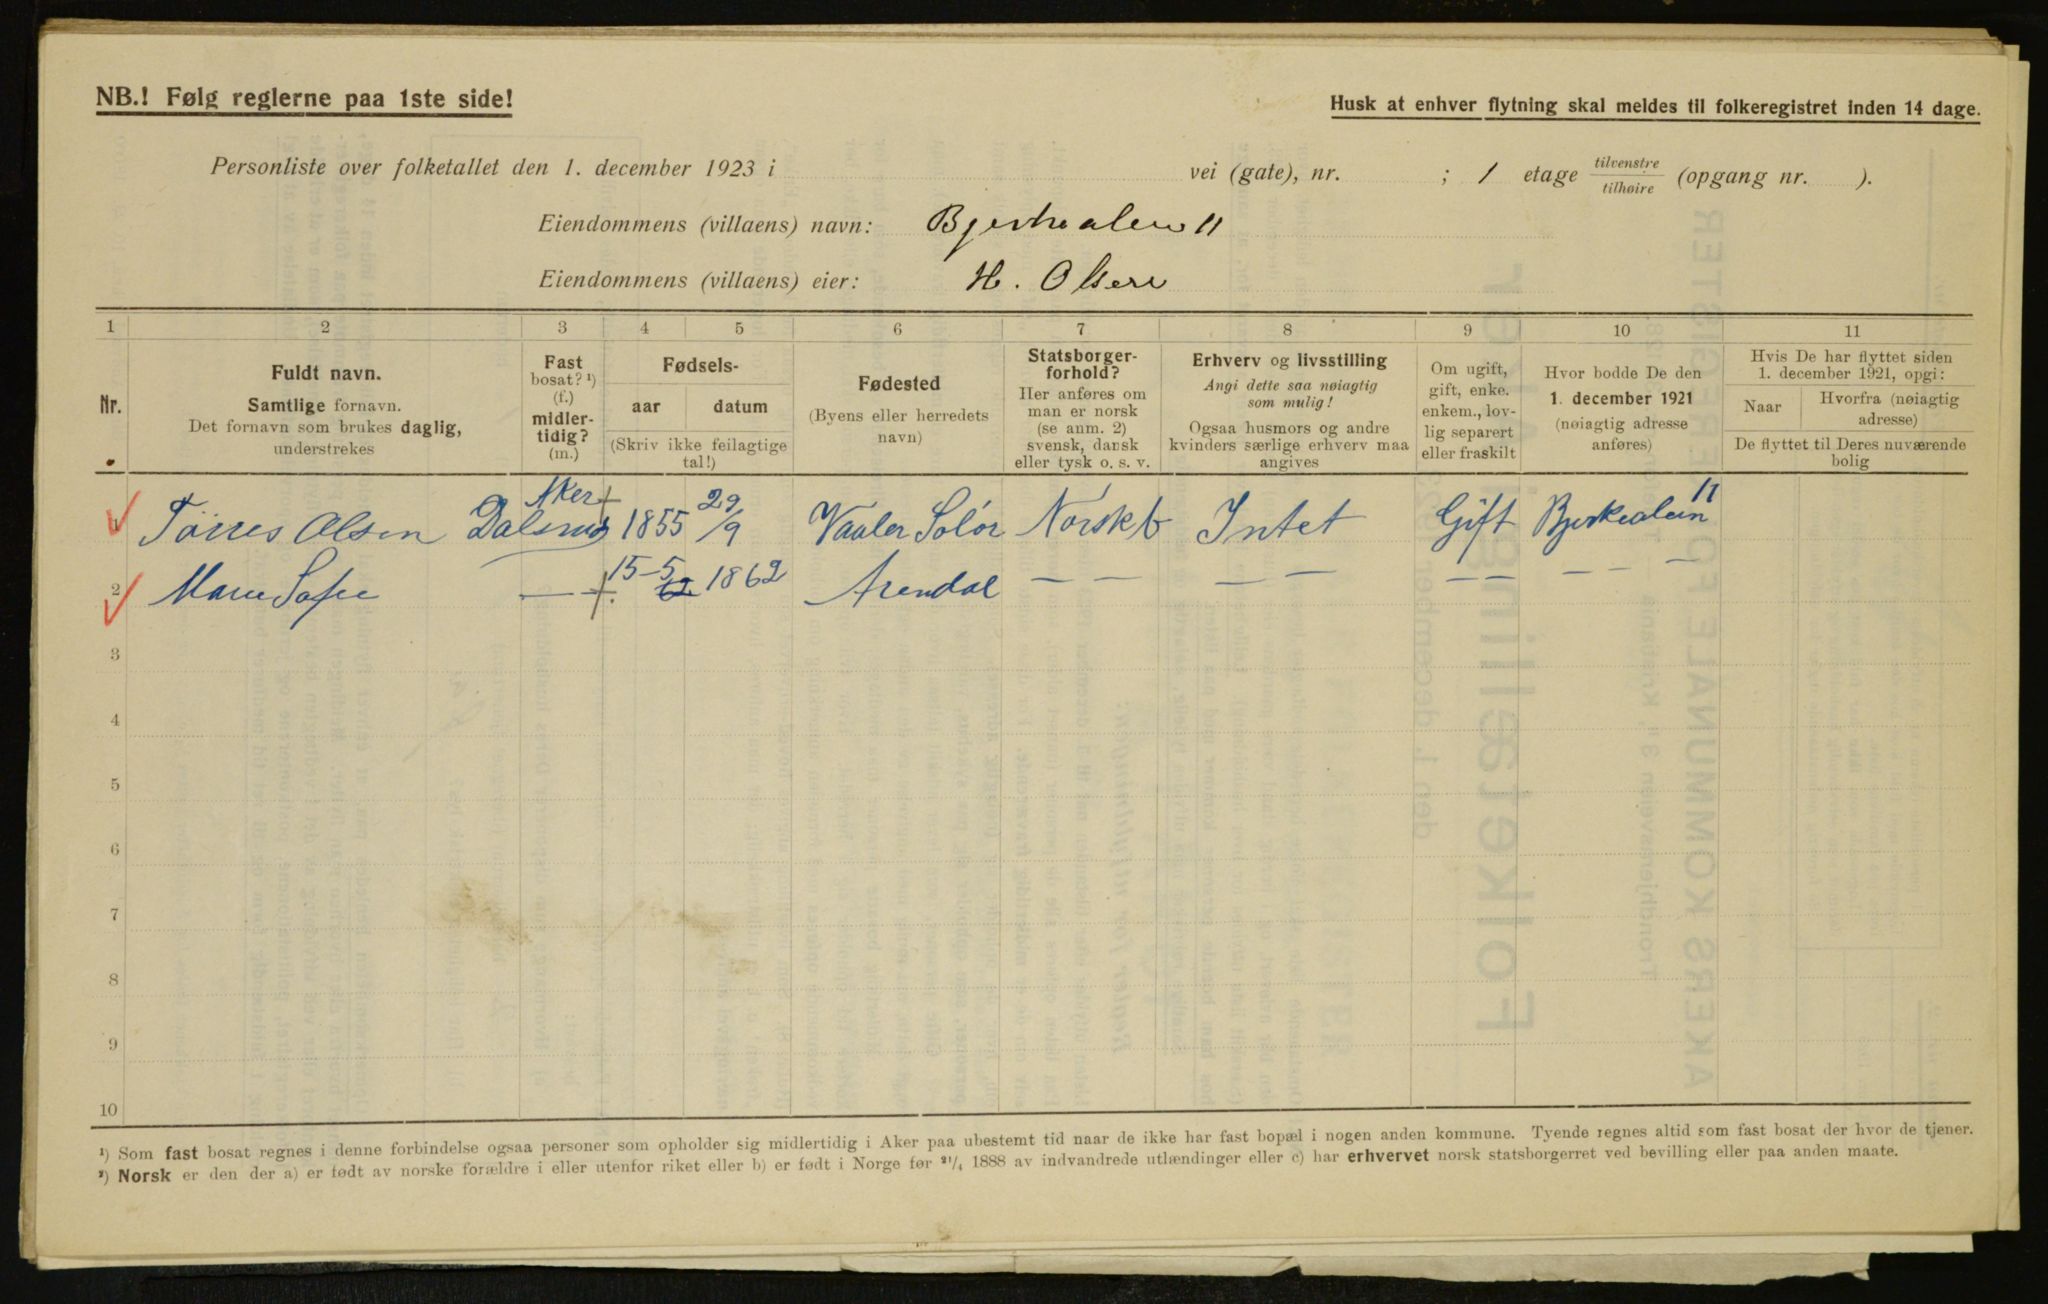 NB.! Følg reglerne paa 1ste side!
Husk at enhver flytning skal meldes til folkeregistret inden 14 dage.
Personliste over folketallet den 1. december 1923 i vei (gate), nr. ; 1 etage tilvenstre / tilhøire (opgang nr. ).
Eiendommens (villaens) navn: Bjerkealeen 11
Eiendommens (villaens) eier: H. Olsen
1 2 3 4 5 6 7 8 9 10 11
Nr.
Fuldt navn.
Samtlige fornavn.
Det fornavn som brukes daglig,
understrekes
Fast
bosat? ¹)
(f.)
midler-
tidig?
(m.)
Fødsels-
aar datum
(Skriv ikke feilagtige
tal!)
Fødested
(Byens eller herredets
navn)
Statsborger-
forhold?
Her anføres om
man er norsk
(se anm. 2)
svensk, dansk
eller tysk o. s. v.
Erhverv og livsstilling
Angi dette saa nøiagtig
som mulig!
Ogsaa husmors og andre
kvinders særlige erhverv maa
angives
Om ugift,
gift, enke.
enkem., lov-
lig separert
eller fraskilt
Hvor bodde De den
1. december 1921
(nøiagtig adresse
anføres)
Hvis De har flyttet siden
1. december 1921, opgi:
Naar
Hvorfra (nøiagtig
adresse)
De flyttet til Deres nuværende
bolig
1 Tørres Olsen Aker 1855 29/9 Vaaler Solør Norsk Intet Gift 11
2 Marie Sofie — 15-5 1862 Arendal — — — — — — — — —
3
4
5
6
7
8
9
10
¹) Som fast bosat regnes i denne forbindelse ogsaa personer som opholder sig midlertidig i Aker paa ubestemt tid naar de ikke har fast bopæl i nogen anden kommune. Tyende regnes altid som fast bosat der hvor de tjener.
²) Norsk er den der a) er født av norske forældre i eller utenfor riket eller b) er født i Norge før ²¹/₄ 1888 av indvandrede utlændinger eller c) har erhvervet norsk statsborgerret ved bevilling eller paa anden maate.